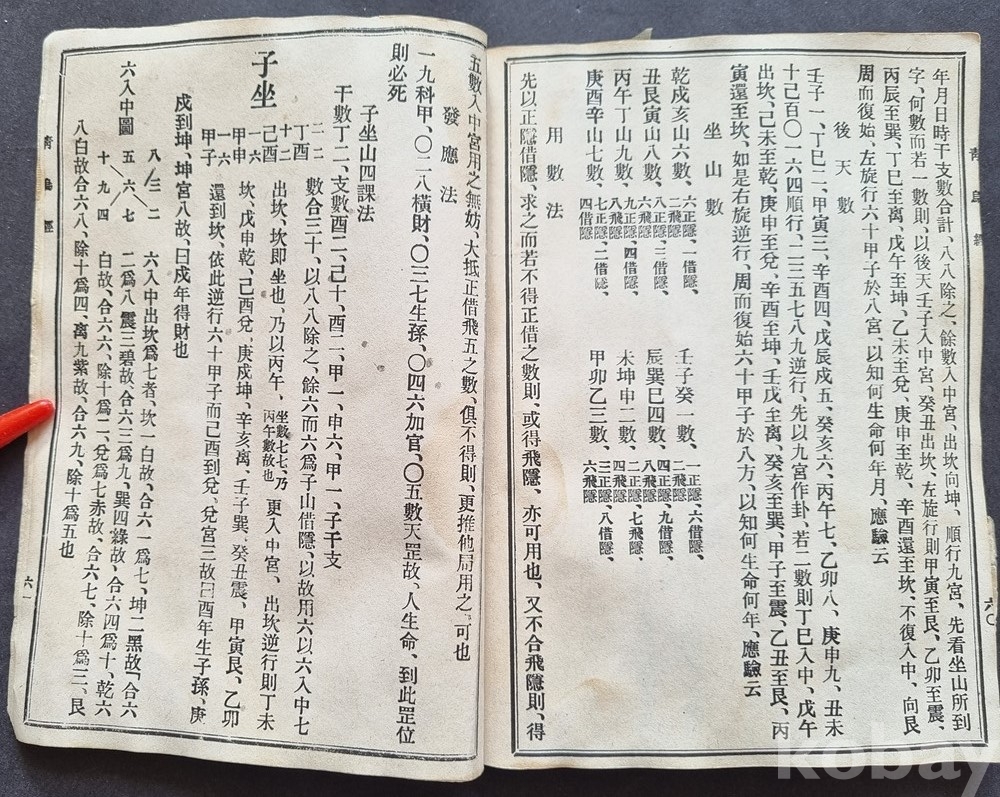 年月日時干支數合計、八八除之、餘數入中宮、出坎向坤、順行九宮、先看坐山所到
字、何數而若一數則、以後天壬子入中宮、癸丑出坎、左旋行則甲寅至艮、乙卯至震、
丙辰至巽、丁巳至離、戊午至坤、乙未至兌、庚申至乾、辛酉還至坎、不復入中、向艮
周而復始、左旋行六十甲子於八宮、以知何生命何年月、應驗云
後天數
壬子一、丁巳二、甲寅三、辛酉四、戊辰戌五、癸亥六、丙午七、乙卯八、庚申九、丑未
十己百〇一六四順行、二三五七八九逆行、先以九宮作卦、若二數則丁巳入中、戊午
出坎、己未至乾、庚申至兌、辛酉至坤、壬戌至離、癸亥至巽、甲子至震、乙丑至艮、丙
寅還至坎、如是右旋逆行、周而復始六十甲子於八方、以知何生命何年、應驗云
坐山數
乾戌亥山六數、六正隱、一借隱、二飛隱 壬子癸一數、一正隱、六借隱、二飛隱
丑艮寅山八數、八正隱、三借隱、六飛隱 辰巽巳四數、四正隱、九借隱、八飛隱
丙午丁山九數、九正隱、四借隱、八飛隱 未坤申二數、二正隱、七飛隱、四飛隱
庚酉辛山七數、七正隱、二借隱、四借隱 甲卯乙三數、三正隱、八借隱、六飛隱
用數法
先以正隱借隱、求之而若不得正借之數則、或得飛隱、亦可用也、又不合飛隱則、得
六〇
五數入中宮用之無妨、大抵正借飛五之數、俱不得則、更推他局用之、可也
發應法
一九科甲、〇二八橫財、〇三七生孫、〇四六加官、〇五數天罡故、人生命、到此罡位
則必死
子坐山四課法
干數丁二、支數酉二、己十、酉二、甲一、申六、甲一、子干支
子坐
二二 丁酉
十二 己酉
一六 甲申
一六 甲子
數合三十、以八八除之、餘六而六爲子山借隱、以故用六以六入中七
出坎、坎即坐也、乃以丙午、坐數七七、乃丙午數故也 更入中宮、出坎逆行則丁未
坎、戊申乾、己酉兌、庚戌坤、辛亥離、壬子巽、癸丑震、甲寅艮、乙卯
還到坎、依此逆行六十甲子而己酉到兌、兌宮三故曰酉年生子孫、庚
戌到坤、坤宮八故、曰戌年得財也
六入中圖
八 三 二
五 六 七
十 九 四
六入中出坎爲七者、坎一白故、合六一爲七、坤二黑故、合六
二爲八、震三碧故、合六三爲九、巽四綠故、合六四爲十、乾六
白故、合六六、除十爲二、兌爲七赤故、合六七、除十爲三、艮
八白故合六八、除十爲四、離九紫故、合六九、除十爲五也
六一
kobay